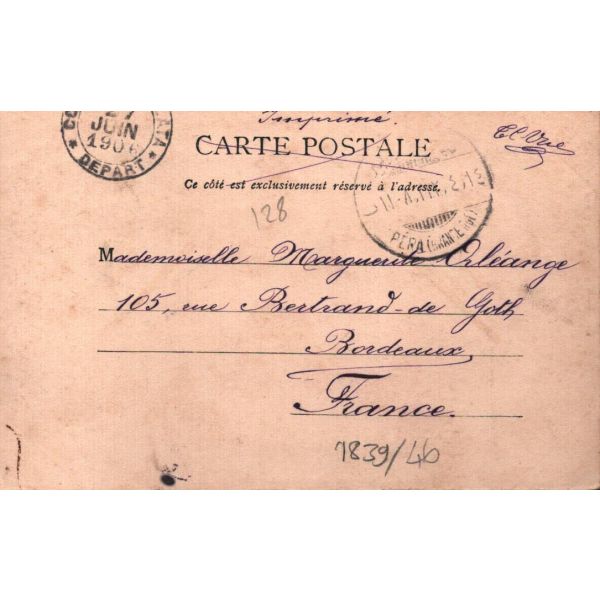 Imprimé
CARTE POSTALE
Ce côté est exclusivement réservé à l'adresse.
JUIN
DEPART
PÉRA
128
Mademoiselle Marguerite Orléange
105, rue Bertrand-de Goth
Bordeaux,
France.
1839/46